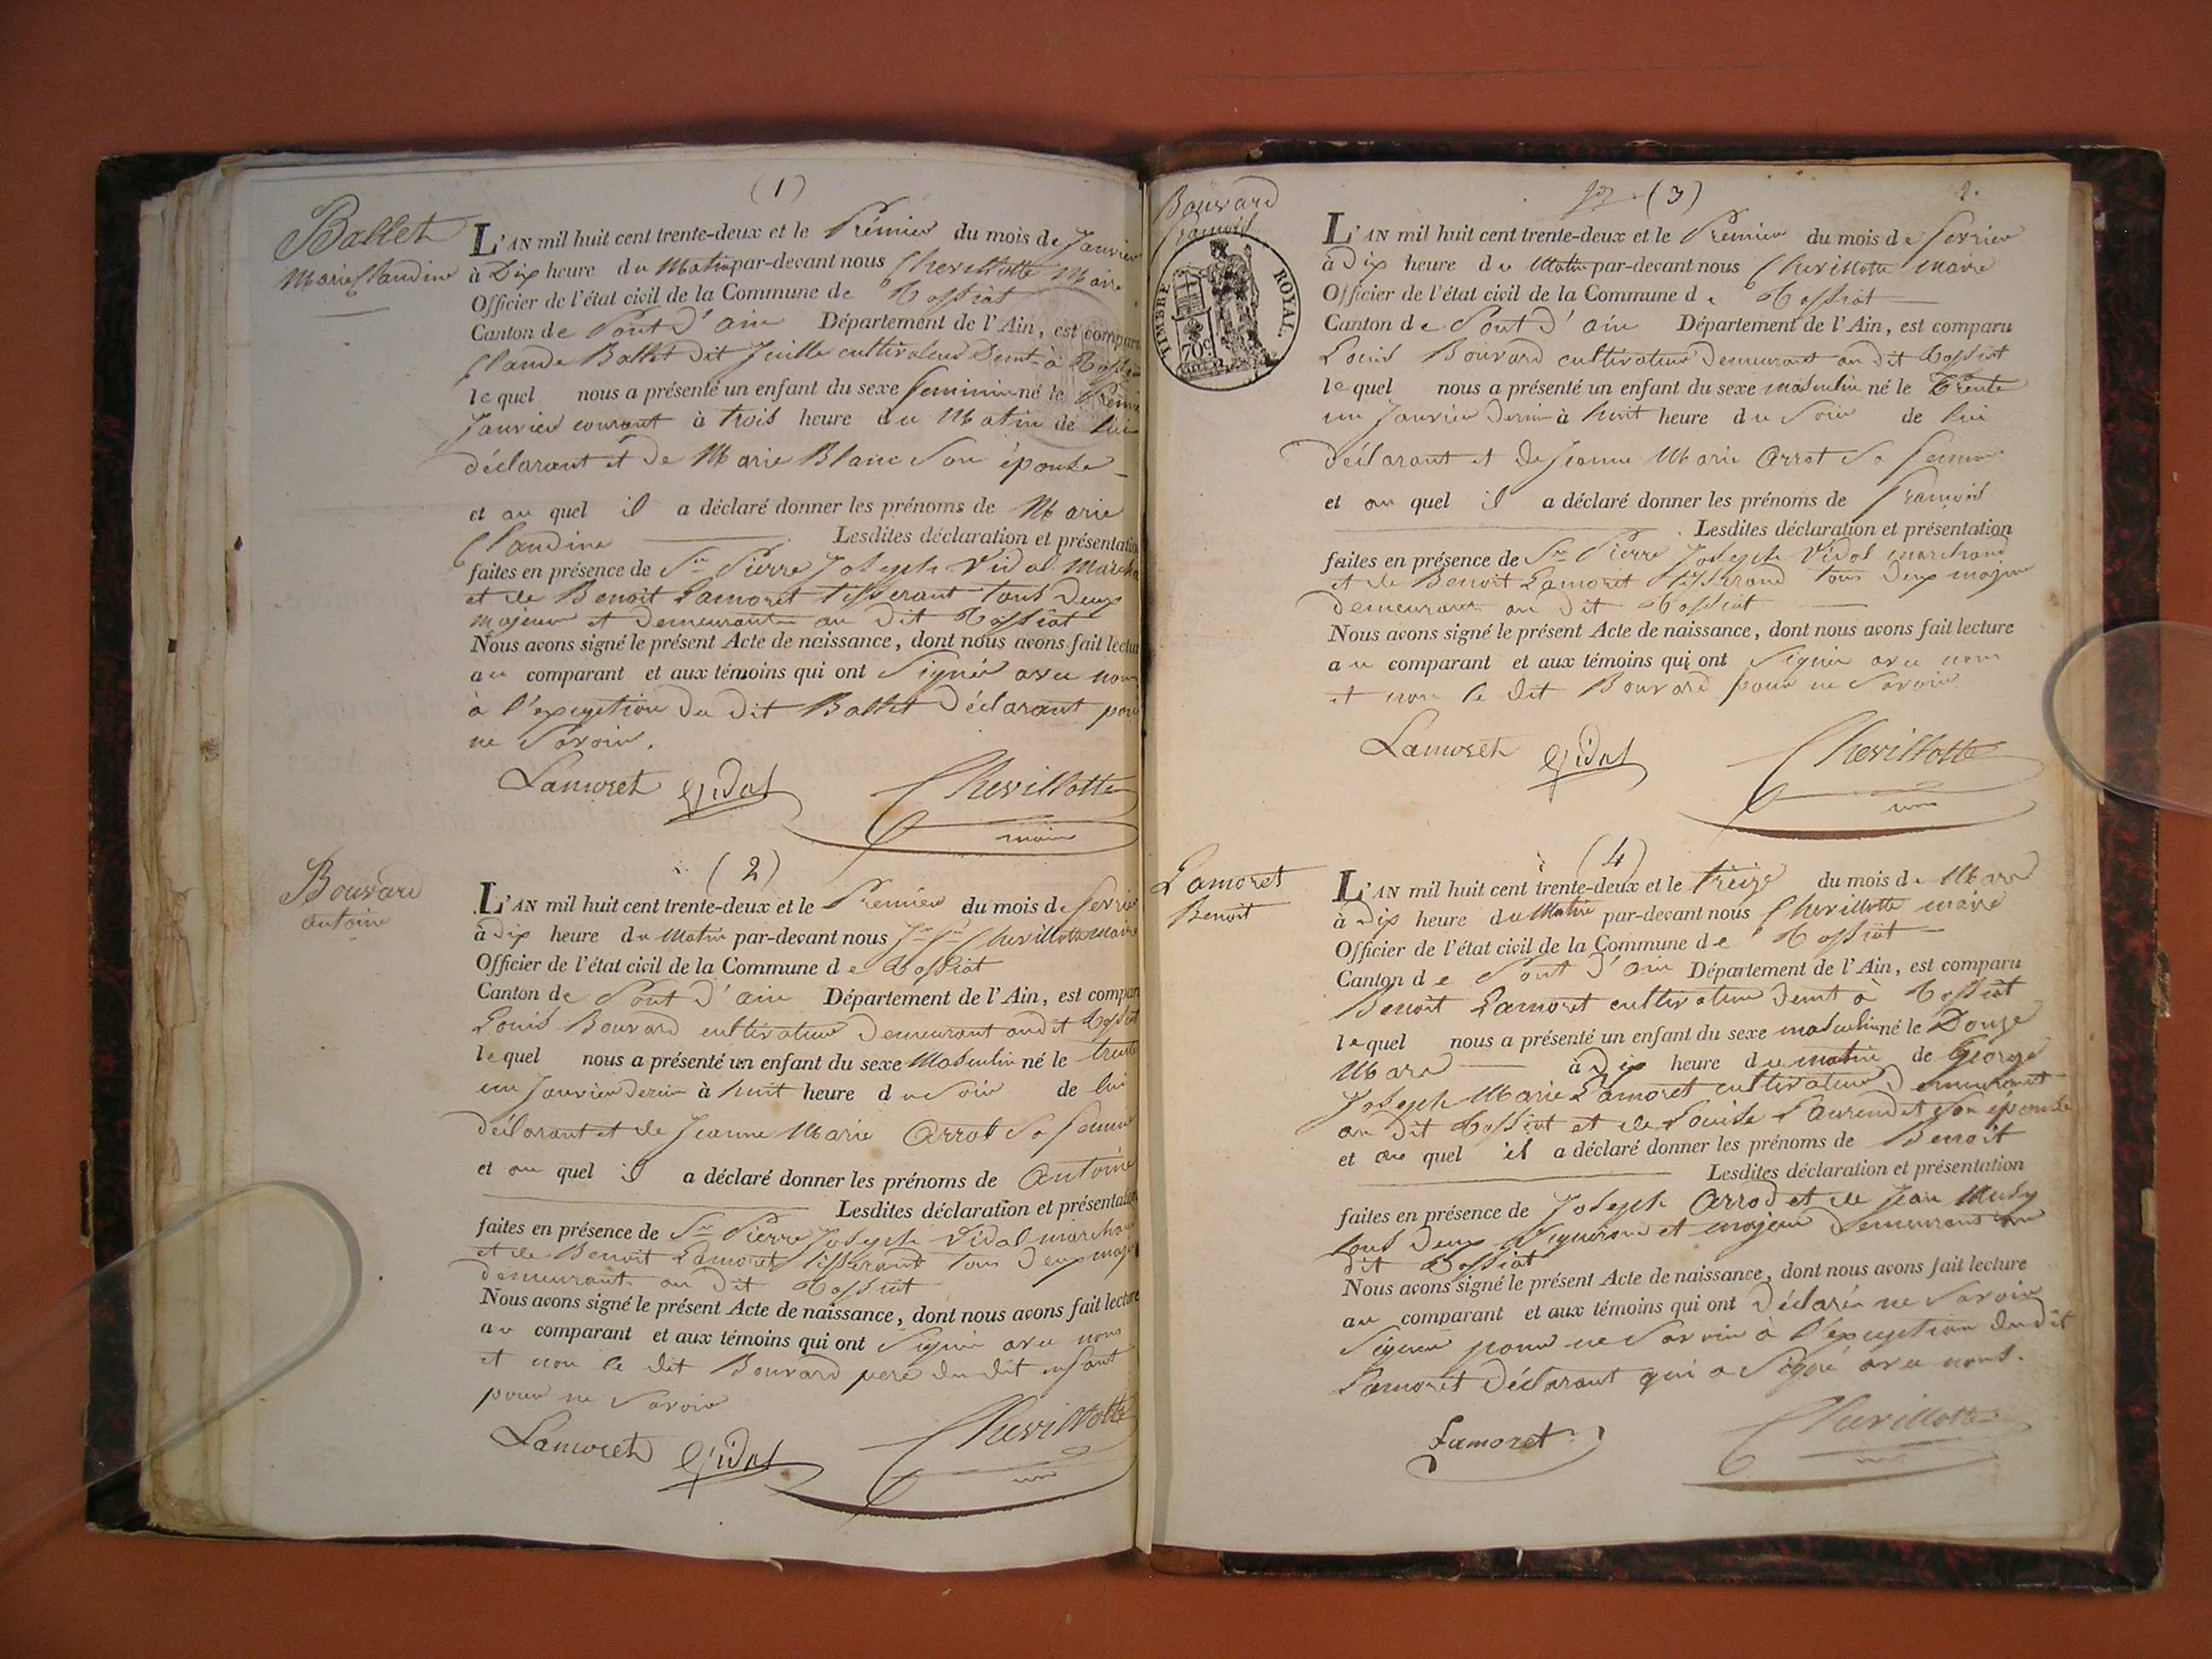 (1)
Ballet
Marie Claudine
L'AN mil huit cent trente-deux et le Prémier du mois de Janvier
à Dix heure du Matin par-devant nous Chevillotte Maire
Officier de l'état civil de la Commune de Tossiat
Canton de Pont d'ain Département de l'Ain, est comparu
Claude Ballet dit Juille cultivateur Demt à Tossiat
lequel nous a présenté un enfant du sexe feminin né le Premier
Janvier courant à trois heure du Matin de lui
déclarant et de Marie Blanc Son épouse
et au quel il a déclaré donner les prénoms de Marie
Claudine Lesdites déclaration et présentation
faites en présence de Sr Pierre Joseph Vidal Marchand
et de Benoit Lamoret tisserant tous Deux
majeur et Demeurant au Dit Tossiat
Nous avons signé le présent Acte de naissance, dont nous avons fait lecture
au comparant et aux témoins qui ont Signér avec nous
à l'exception du dit Ballet Déclarant pour
ne Savoir.
Lamoret Vidal Chevillotte
maire
(2)
Bouvard
antoine
L'AN mil huit cent trente-deux et le Premier du mois de fevrier
à Dix heure du Matin par-devant nous Chevillotte maire
Officier de l'état civil de la Commune de Tossiat
Canton de Pont d'ain Département de l'Ain, est comparu
Louis Bouvard cultivateur Demeurant audit Tossiat
lequel nous a présenté un enfant du sexe Masculin né le trente
un Janvier dernier à huit heure du Soir de lui
déclarant et de Jeanne Marie Arrot Sa femme
et au quel il a déclaré donner les prénoms de Antoine
Lesdites déclaration et présentation
faites en présence de Sr Pierre Joseph Vidal marchand
et de Benoit Lamoret tisserand tous Deux majeur
demeurant au dit Tossiat
Nous avons signé le présent Acte de naissance, dont nous avons fait lecture
au comparant et aux témoins qui ont Signér avec nous
et non le dit Bouvard pere du dit enfant
pour ne Savoir
Lamoret Vidal Chevillotte
(3) 2.
Bouvard
francois
TIMBRE ROYAL.
70c
L'AN mil huit cent trente-deux et le Premier du mois de fevrier
à Dix heure du Matin par-devant nous Chevillotte maire
Officier de l'état civil de la Commune de Tossiat
Canton de Pont d'ain Département de l'Ain, est comparu
Louis Bouvard cultivateur Demeurant au dit Tossiat
lequel nous a présenté un enfant du sexe masculin né le Trente
un Janvier Dernier à huit heure du Soir de lui
déclarant et de Jeanne Marie Arrot Sa femme
et au quel il a déclaré donner les prénoms de francois
Lesdites déclaration et présentation
faites en présence de Sr Pierre Joseph Vidal marchand
et de Benoit Lamoret tisserand tous Deux majeur
demeurant au Dit Tossiat
Nous avons signé le présent Acte de naissance, dont nous avons fait lecture
au comparant et aux témoins qui ont Signér avec nous
et non le dit Bouvard pour ne Savoir
Lamoret Vidal Chevillotte
(4)
Lamoret
Benoit
L'AN mil huit cent trente-deux et le treize du mois de Mars
à Dix heure du Matin par-devant nous Chevillotte maire
Officier de l'état civil de la Commune de Tossiat
Canton de Pont d'ain Département de l'Ain, est comparu
Benoit Lamoret cultivateur Demt à Tossiat
lequel nous a présenté un enfant du sexe masculin né le Douze
Mars à Dix heure du matin de George
Joseph Marie Lamoret cultivateur Demeurant
au Dit Tossiat et de Louise Laurendet Son épouse
et au quel il a déclaré donner les prénoms de Benoit
Lesdites déclaration et présentation
faites en présence de Joseph Arrod et de Jean Musy
tous Deux Vigneron et majeur Demeurant au
dit Tossiat
Nous avons signé le présent Acte de naissance, dont nous avons fait lecture
au comparant et aux témoins qui ont Déclarér ne Savoir
Signer pour ne Savoir à l'exception du dit
Lamoret Déclarant qui a Signé avec nous.
Lamoret Chevillotte